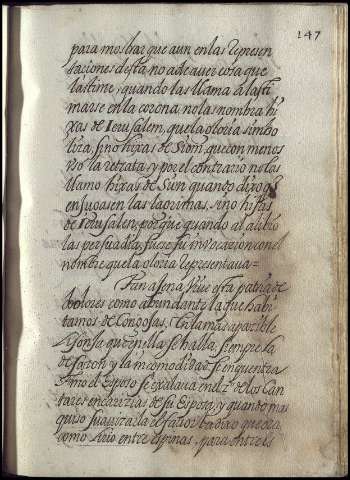 147
para mostrar que aun en las represen
taciones desta no a de aver cosa que
lastime; quando las llama a lasti
marse en la corona no las nombra hi
xas de Ierusalem, que la gloria simbo
liza, sino hixas de Sion, que con menos
la retrata, y por el contrario no las
llamo hixas de Sion quando dixo q
en sus las lagrimas, sino hijas
de Ierusalen, porque quando al alibio
las persuadia, fuese su invocazion con el
nombre que la gloria representava=
Tan asena fue esta patria de
dolores como abundante la que habi
tamos de Congojas, En la mas apacible
que en ella se halla, siempre la
de façon y la incomodidad se encuentra
el Esposo se exalava en el de los Can
tares en carizias de su Esposa, y quando mas
quiso suavizarla el fabor la dixo que era
como lirio entre espinas, para